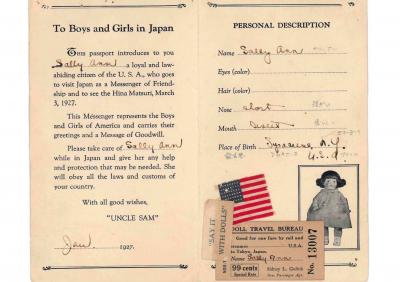 To Boys and Girls in Japan
THIS passport introduces to you
Sally Ann a loyal and law-
abiding citizen of the U. S. A., who goes
to visit Japan as a Messenger of Friend-
ship and to see the Hina Matsuri, March
3, 1927.
This Messenger represents the Boys
and Girls of America and carries their
greetings and a Message of Goodwill.
Please take care of Sally Ann
while in Japan and give her any help
and protection that may be needed. She
will obey all the laws and customs of
your country.
With all good wishes,
"UNCLE SAM"
Jan. 1927.
PERSONAL DESCRIPTION
Name Sally Ann
Eyes (color)
Hair (color)
Nose short
Mouth sweet
Place of Birth Syracuse, N.Y.
U.S.A
"SAY IT
WITH DOLLS"
DOLL TRAVEL BUREAU
Good for one fare by rail and
U.S.A.
to Tokyo, Japan.
Name Sally Ann
99 cents
Special Rate
Sidney L. Gulick
Gen. Passenger Agt.
No. 13007